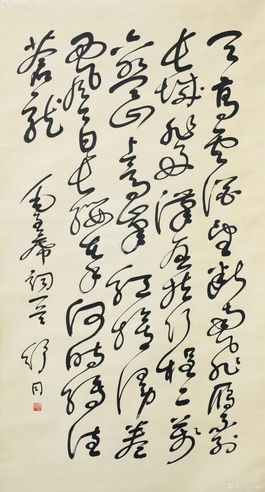 天高雲淡望斷南飛雁不到
长城非好漢屈指行程二萬
六盘山上高峯红旗漫卷
西風今日长缨在手何時缚住
蒼龍
毛主席词一首 舒同